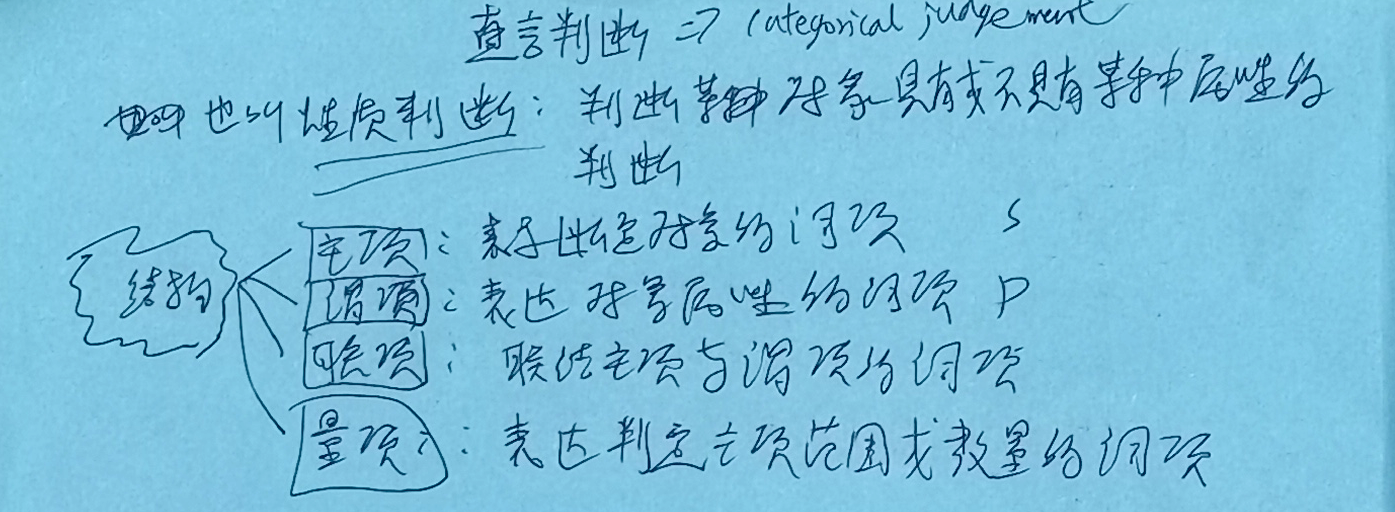 直言判断 => categorical judgement
也叫性质判断: 判断某种对象具有或不具有某种属性的
判断
结构
主项: 表示断定对象的词项 S
谓项: 表达对象属性的词项 P
联项: 联结主项与谓项的词项
量项: 表达判定主项范围或数量的词项